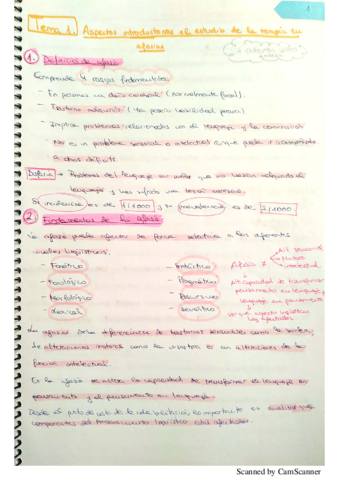 1
Tema 1. Aspectos introductorios al estudio de la terapia en
afasias
1. Definición de afasia
Comprende 4 rasgos fundamentales:
- En personas con daño cerebral (normalmente focal).
- Trastorno adquirido (Ya poseía habilidad previa)
- Implica problemas relacionados con el lenguaje y la comunicación
- No es un problema sensorial o intelectual aunque puede ir acompañado
a otros déficits
Disfasia → Problemas del lenguaje en niños que no habían adquirido el
lenguaje y han sufrido una lesión cerebral.
Su incidencia es de 1/1000 y su prevalencia es de 2/1000
2. Fundamentos de la afasia
La afasia puede afectar de forma selectiva a los diferentes
niveles lingüísticos:
- Fonético
- Fonológico
- Morfológico
- Léxical
- Sintáctico
- Pragmático
- Discursivo
- Semántico
Afasia ≠
Alt. capacidad de transformar
pensamiento en lenguaje y
lenguaje en pensamiento
Las afasias deben diferenciarse de trastornos sensoriales como la sordera,
de alteraciones motoras como la disartria en alteraciones de la
función intelectual.
En la afasia se altera la capacidad de transformar el lenguaje en
pensamiento y el pensamiento en lenguaje.
Desde el punto de vista de la rehabilitación lo importante es analizar qué
componentes del procesamiento lingüístico están afectados.
Scanned by CamScanner